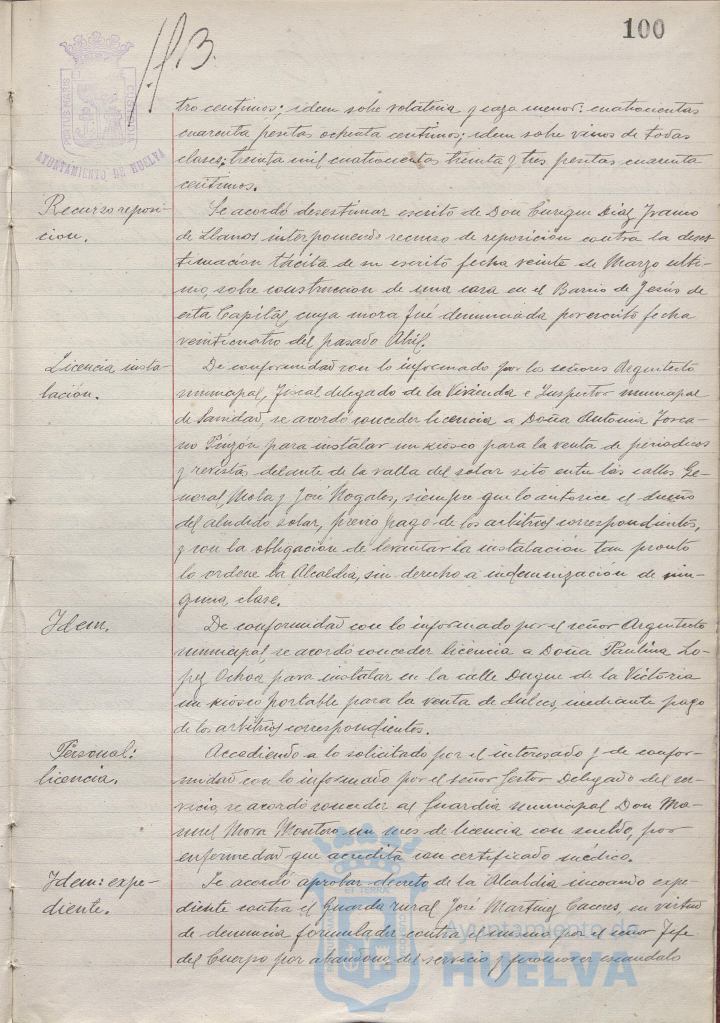 100
tro centimos; idem sobre volateria y caza menor: cuatrocientas
cuarenta pesetas ochenta centimos; idem sobre vinos de todas
clases: treinta mil cuatrocientas treinta y tres pesetas cuarenta
centimos.
Recurso reposi-
cion.
Se acordó desestimar escrito de Don Enrique Diaz Franco
de Llanos interponiendo recurso de reposición contra la deses
timación tácita de su escrito fecha veinte de Marzo ulti-
mo, sobre construccion de una casa en el Barrio de Jesús de
esta Capital, cuya mora fué denunciada por escrito fecha
veinticuatro del pasado Abril.
Licencia insta-
lación.
De conformidad con lo informado por los señores Arquitecto
municipal, Fiscal delegado de la Vivienda e Inspector municipal
de Sanidad, se acordó conceder licencia a Doña Antonia Tosca-
no Pinzón para instalar un kiosco para la venta de periodicos
y revistas delante de la valla del solar sito entre las calles Ge-
neral Mola y José Nogales, siempre que lo autorice el dueño
del aludido solar, previo pago de los arbitrios correspondientes,
y con la obligación de levantar la instalación tan pronto
lo ordene la Alcaldia, sin derecho a indemnización de nin-
guna clase.
Idem.
De conformidad con lo informado por el señor Arquitecto
municipal, se acordó conceder licencia a Doña Paulina Lo-
pez Ochoa para instalar en la calle Duque de la Victoria
un kiosco portable para la venta de dulces, mediante pago
de los arbitrios correspondientes.
Personal:
licencia.
Accediendo a lo solicitado por el interesado y de confor-
midad con lo informado por el señor Gestor Delegado del ser-
vicio, se acordó conceder al Guardia municipal Don Ma-
nuel Mora Montoro un mes de licencia con sueldo, por
enfermedad que acredita con certificado médico.
Idem: expe-
diente.
Se acordó aprobar decreto de la Alcaldia incoando expe-
diente contra el Guarda rural José Martinez Caceres, en virtud
de denuncia formulada contra el mismo por el señor Jefe
del Cuerpo por abandono del servicio y promover escandalo
AYUNTAMIENTO DE HUELVA
Ayuntamiento de
HUELVA